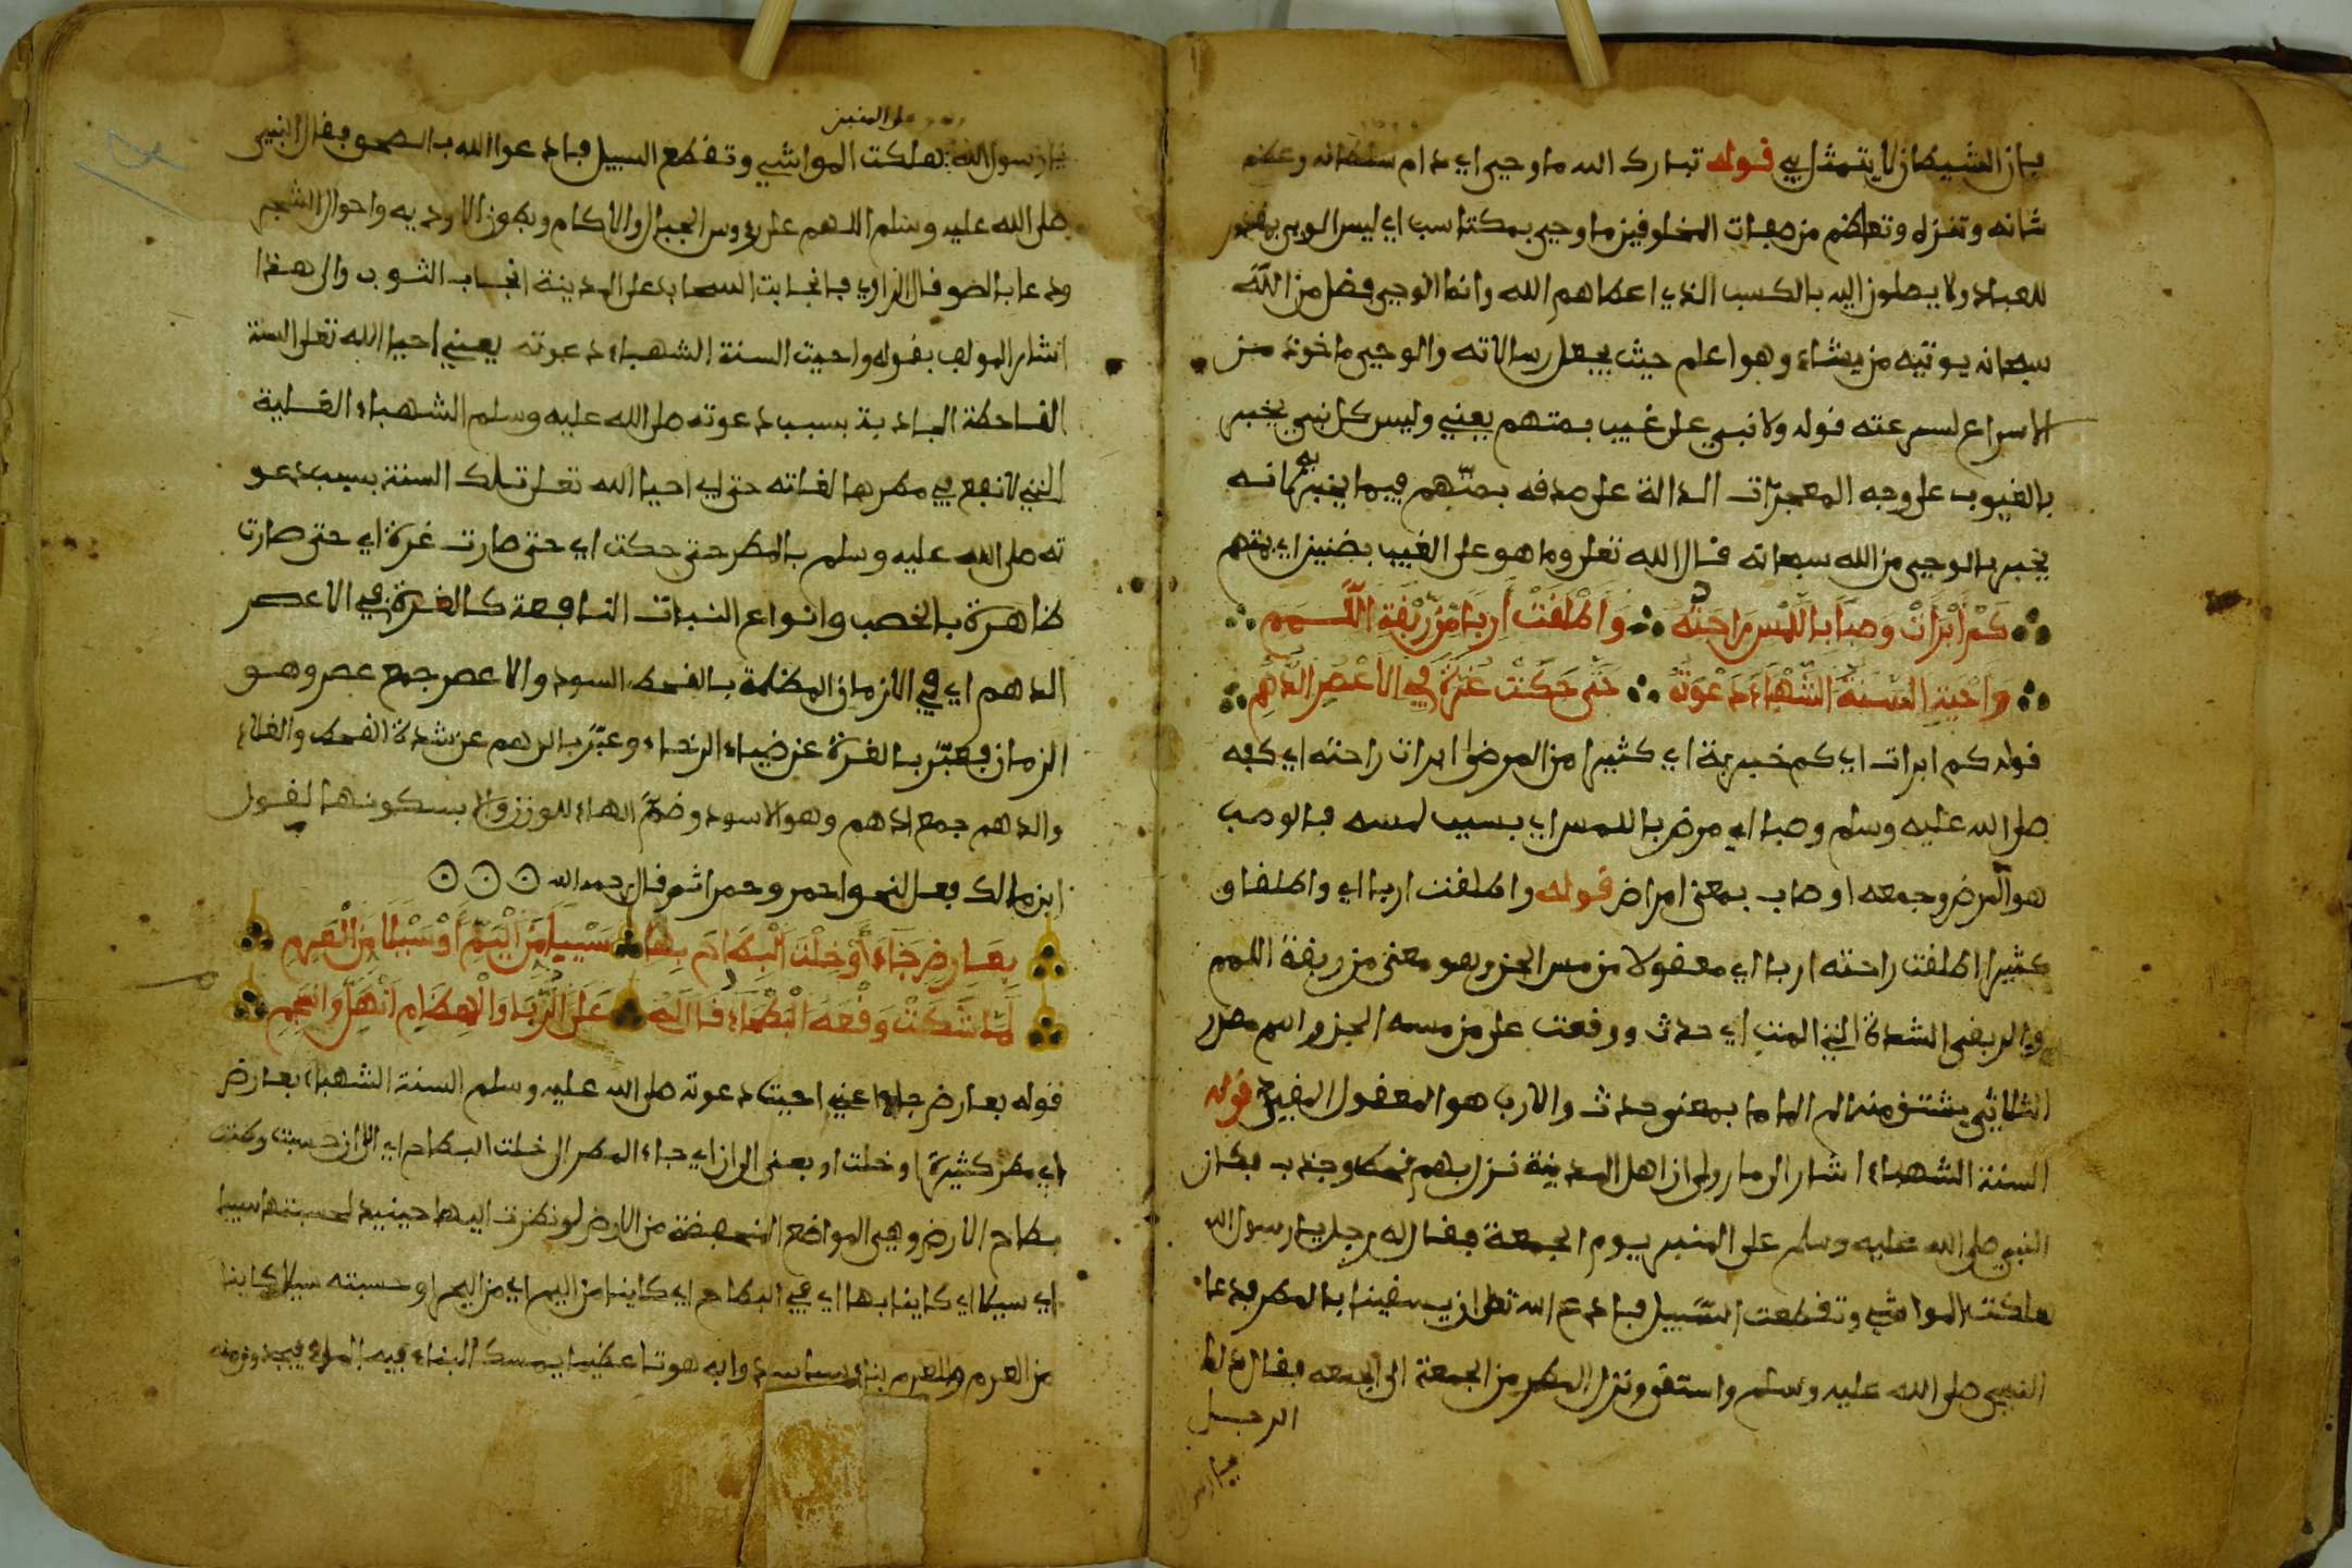 فإن الشيطان لا يتمثل بي قوله تبارك الله ما وحي اي دام سلطانه وعظم
شانه وتنزه وتعاظم من صفات المخلوقين ما وحي بمكتاسب اي ليس الوحي
للعباد ولا يصلون اليه بالكسب الذي اعطاهم الله وانما الوحي فضل من الله
سبحانه يوتيه من يشاء وهو اعلم حيث يجعل رسالاته والوحي ماخوذ من
الاسراع لسرعته قوله ولا نبي على غيب بمتهم يعني وليس كل نبي يخبر
بالغيوب على وجه المعجزات الدالة على صدقه بمتّهم فيما يخبر به لانه
يخبر بالوحي من الله سبحانه قال الله تعلى وما هو على الغيب بضنين اي بمتهم
كَمْ أَبْرَأَتْ وَصِبًا بِاللَّمْسِ رَاحَتُهُ وَأَطْلَقَتْ أَرِبًا مِنْ رِبْقَةِ اللَّمَمِ
وَأَحْيَتِ السَّنَةَ الشَّهْبَاءَ دَعْوَتُهُ حَتَّى حَكَتْ غُرَّةً فِي الْأَعْصُرِ الدُّهُمِ
قوله كم ابرات اي كم خبرية اي كثيرا من المرضى ابرات راحته اي كفه
صلى الله عليه وسلم وصبا اي مرض باللمس اي بسبب لمسه فالوصب
هو المرض وجمعه اوصاب بمعنى امراض قوله واطلقت اربا اي واطلقا و
كثيرا اطلقت راحته اربا اي معقولا من مس الجن وهو معنى من ربقة اللمم
والربقى الشدة التي المت اي حدث ووقعت على من مسه الجن واللمم مصدر
الثلاثي يشتق منه الم الماما بمعنى حدث والارب هو المعقول المقيد قوله
السنة الشهباء اشار الى ما روي ان اهل المدينة نزل بهم قحط وجدب فكان
النبي صلى الله عليه وسلم على المنبر يوم الجمعة فقال له رجل يا رسول الله
هلكت المواشي وتقطعت السبيل فادع الله تعلى ان يسقينا بالمطر فدعا
النبي صلى الله عليه وسلم واستقى ونزل المطر من الجمعة الى الجمعه فقال ذلك
الرجل
يا رسول
على المنبر
يا رسول الله هلكت المواشي وتقطع السبيل فادعوا الله بالصحو فقال النبي
صلى الله عليه وسلم اللهم على رءوس الجبال والاكام وبطون الاودية واحوال الشجر
ودعا بالصو قال الراوي فانجابت السحاب على المدينة انجاب الثوب والى هذا
اشار المولف بقوله واحيت السنة الشهباء دعوته يعني احيا الله تعلى السنة
القاحطة الجادبة بسبب دعوته صلى الله عليه وسلم الشهباء القلية
التي لا نفع في مطرها لقلته حتى اي احيا الله تعلى تلك السنة بسبب دعو
ته صلى الله عليه وسلم بالمطر حتى حكت اي حتى صارت غرة اي حتى صارت
ظاهرة بالخصب وانواع النبات النافعة كالغرة في الاعصر
الدهم اي في الازمان المظلمة بالقحط السود والاعصر جمع عصر وهو
الزمان فعبّر بالغرة عن ضياء الرخاء وعبّر بالدهم عن شدة القحط والغلاء
والدهم جمع ادهم وهو الاسود وضمّ الهاء للوزن والا بسكونها لقول
ابن مالك فعل لنحو احمر وحمرا ثم قال رحمه الله
بِعَارِضٍ جَاءَ أَوْ خِلْتَ الْبِطَاحَ بِهَا سَيْبًا مِنَ الْيَمِّ أَوْ سَيْلًا مِنَ الْعَرِمِ
لَمَّا شَكَتْ وَقْعَهُ الْبَطْحَاءُ قَالَ لَهُ عَلَى الرُّبَا وَالْهِضَامِ انْهَلَّ وَانْسَجِمِ
قوله بعارض جاء اعني احيت دعوته صلى الله عليه وسلم السنة الشهباء بعارض
اي مطر كثيرة او خلت او بمعنى الى ان اي جاء المطر الى خلت البطاح اي الى ان حسبت وظننت
بطاح الارض وهي المواضع المنخفضة من الارض لو نظرت اليها حينيد لحسبتها سيبا
اي سيلا اي كاينا بها اي في البطاح اي كاينا من اليم اي من البحر او حسبته سيلا كاينا
من العرم والعرم بناء سد وابه هوتا عظيما يمسك البناء فيه الماء